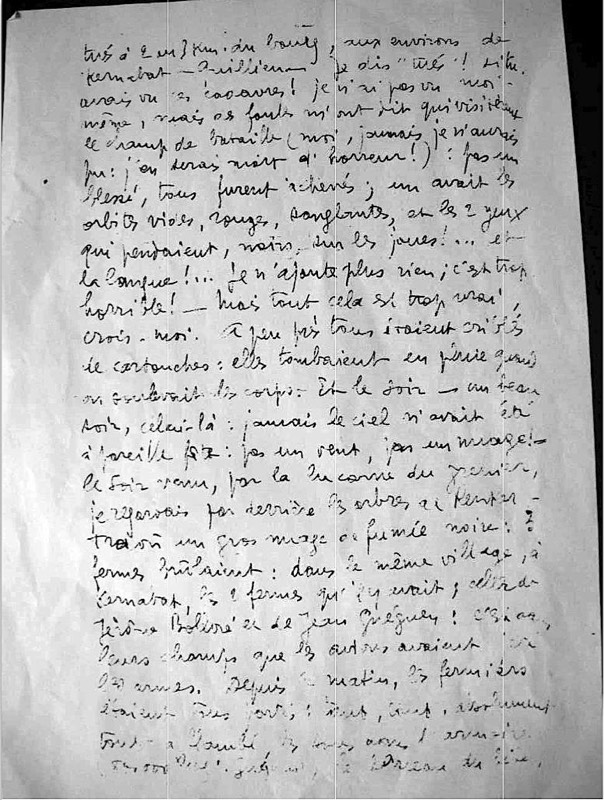 tués à 2 ou 3 km. du bourg, aux environs de
Kernabat - Quillien - Je dis "tués"! Si tu
avais vu ces cadavres! je n'ai pas vu moi-
même, mais des foules m'ont dit qui visitèrent
le champ de bataille (moi, jamais je n'aurais
pu: j'en serais mort d'horreur!): pas un
blessé, tous furent achevés; un avait les
orbites vides, rouges, sanglantes, et les 2 yeux
qui pendaient, noirs, sur les joues!... et
la langue!... Je n'ajoute plus rien; c'est trop
horrible! - Mais tout cela est trop vrai,
crois-moi. A peu près tous étaient criblés
de cartouches: elles tombaient en pluie quand
on soulevait les corps. Et le soir - un beau
soir, celui-là: jamais le ciel n'avait été
à pareille fête: pas un vent, pas un nuage! -
le soir venu, par la lucarne du grenier,
je regardais par derrière les arbres de
un gros nuage de fumée noire: 3
fermes brûlaient: dans le même village, à
Kernabat, les 2 fermes qu'il y avait; celles de
Jérôme Bolloré et de Jean Quéguen! C'est dans
leurs champs que les avions avaient jeté
les armes. Depuis le matin, les fermiers
étaient tous partis: tout, tout, absolument
tout a flambé,